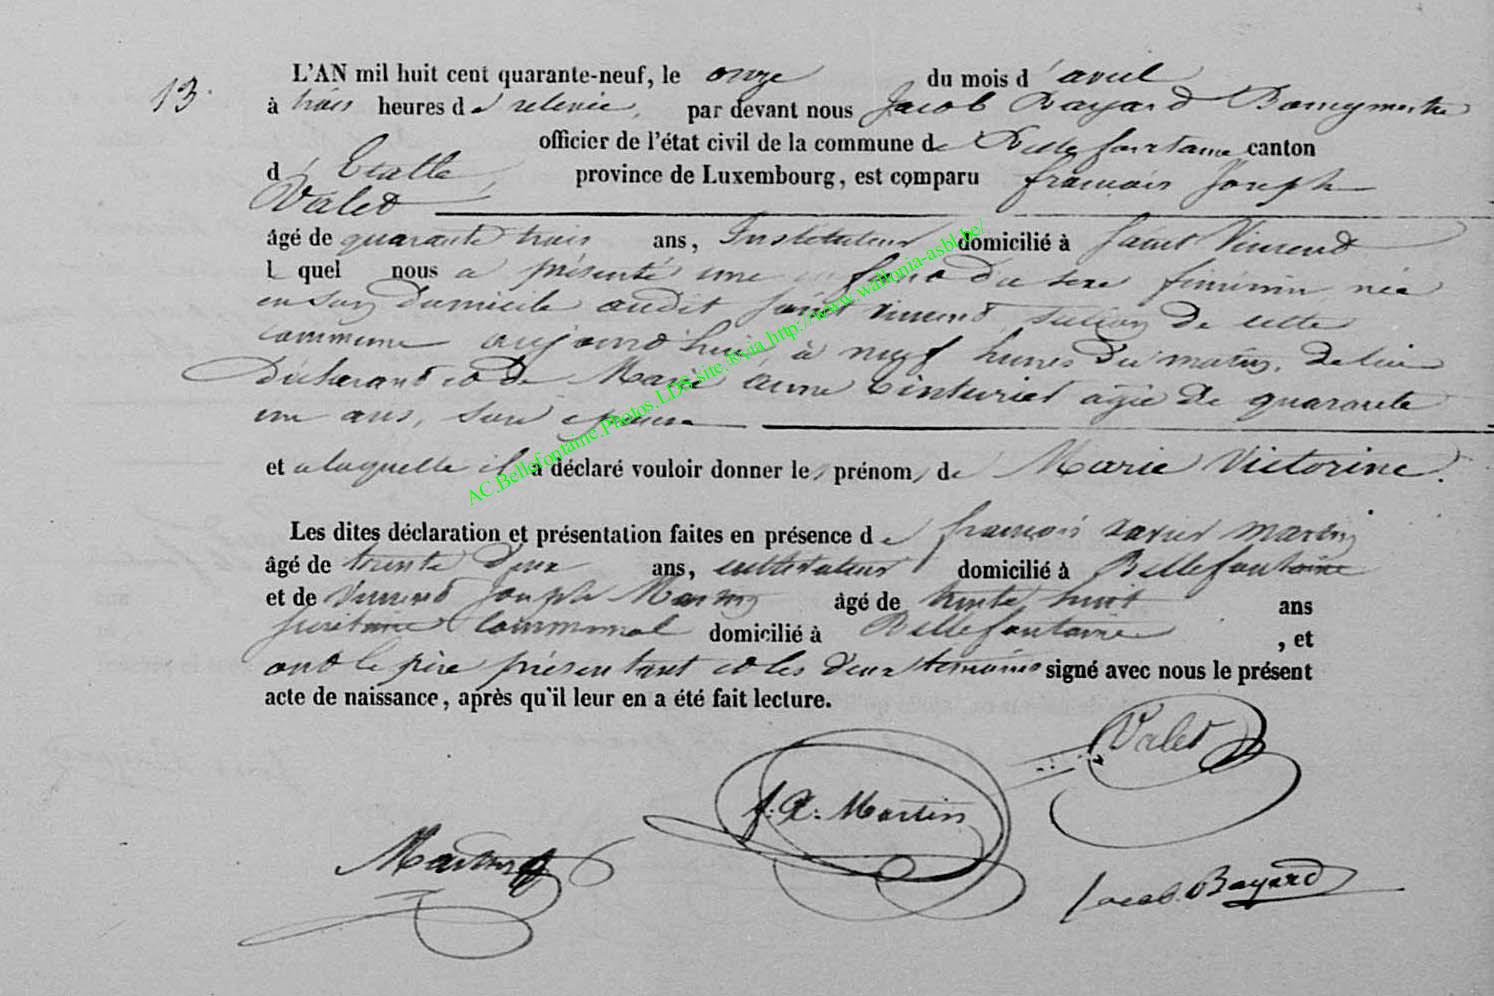 13.
L'AN mil huit cent quarante-neuf, le onze du mois d'avril
à trois heures de relevée, par devant nous Jacob Bayard Bourgmestre
officier de l'état civil de la commune de Bellefontaine canton
d'Etalle, province de Luxembourg, est comparu francois Joseph
Valet
âgé de quarante trois ans, Instituteur domicilié à Saint Vincent
l quel nous a présenté une enfant du sexe féminin née
en son domicile audit Saint Vincent, section de cette
commune aujourd'hui, à neuf heures du matin, de lui
Déclarant et de Marie anne Cinturiet agée de quarante
une ans, son epouse
et a laquelle il a déclaré vouloir donner les prénoms de Marie Victorine.
Les dites déclaration et présentation faites en présence de françois xavier Martin
âgé de trente deux ans, cultivateur domicilié à Bellefontaine
et de Vincent Joseph Martin âgé de trente huit ans
secrétaire Communal domicilié à Bellefontaine, et
ont le père présentant et les deux témoins signé avec nous le présent
acte de naissance, après qu'il leur en a été fait lecture.
Valet
f. X. Martin
Martin
Jacob Bayard
AC.Bellefontaine.Photos.LDS.site.&.via.http://www.wallonia-asbl.be/